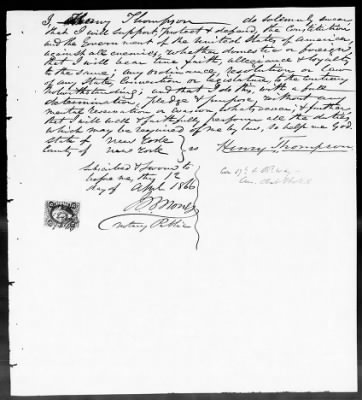 I, Henry Thompson do solemnly swear
that I will support, protect & defend, the Constitution
and the Government of the United States of America
against all enemies, whether domestic or foreign,
that I will bear true faith, allegiance & loyalty
to the same, any ordinance, resolution or law
of any State, Convention or Legislature, to the contrary
notwithstanding; and that I do this, with a full
determination, pledge & purpose, without any
mental reservation or evasion whatsoever; & further
that I will well & faithfully perform all the duties
which may be required of me by law, so help me God.
State of New York
County of New York } ss Henry Thompson
Subscribed & sworn to
before me, this 12
day of Apl 1866
Notary Public